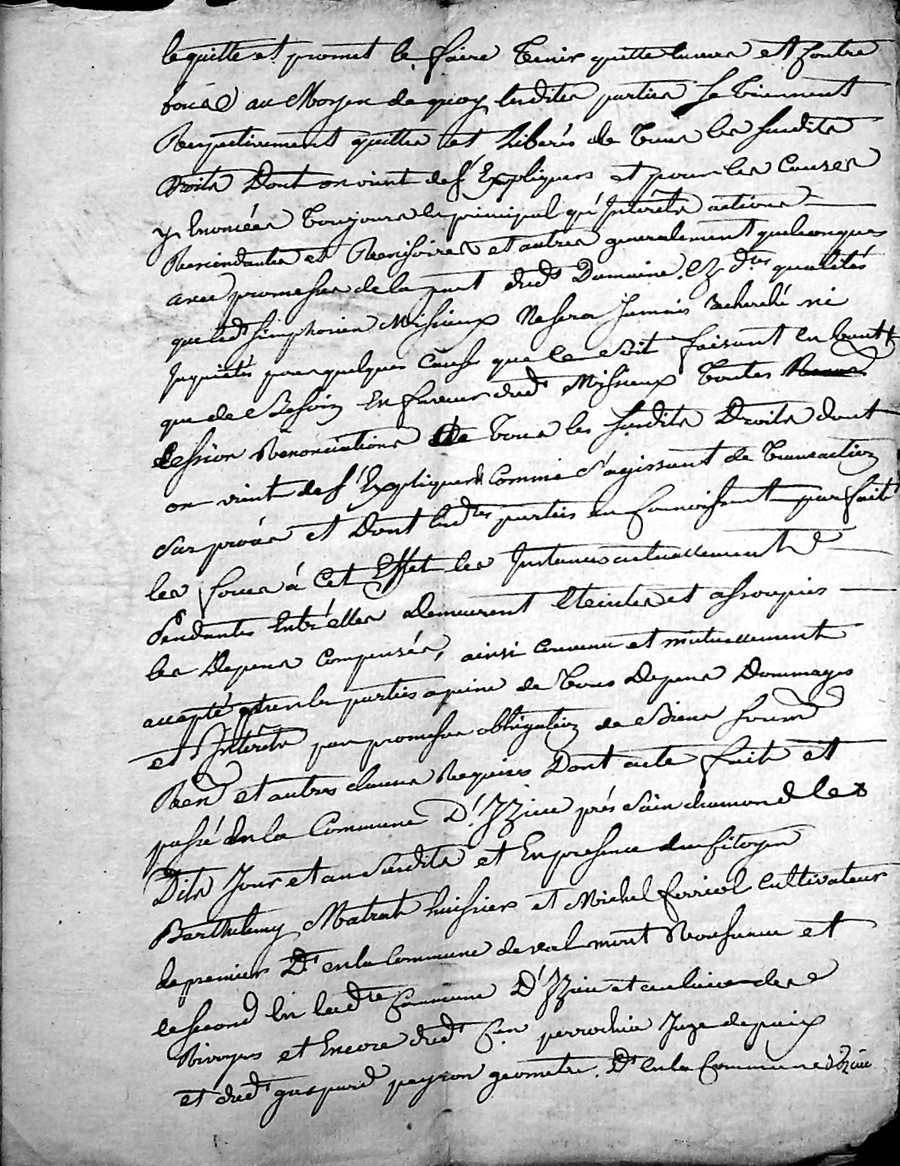 le quitte et promet le faire tenir quitte envers et contre
tous au Moyen de quoy lesdites parties se tiennent
Respectivement quittes et Liberés de tous les susdits
Droits Dont on vient de s'Expliquer et pour les Causes
y Enoncées toujours le principal qu'Intérêts actions
Rescindantes et Rescisoires et autres generalement quelconques
avec promesse de la part dud. Domaine ez d.tes qualités
que led. simphorien Misieux Ne sera Jamais Recherché ni
Inquietés pour quelques Cause que ce soit faisant en tant
que de Besoin En faveur dud. Misieux toutes
Cession Renonciations De tous les susdits Droits dont
on vient de s'Expliquer Comme s'agissant de transaction
sur procès et Dont lesd.tes parties en Connoissent parfait
les forces à Cet Effet les Instances actuellement
Pendantes Entr'elles Demeurent Eteintes et assoupies
les Depens Compensés, ainsi Convenu et mutuellement
accepté par les parties a peine de tous Depens Dommages
et Intérêts par promesse obligation de Biens soum
Ren et autres clauses Requises Dont acte fait et
passé en la Commune D'Izieu près Sainchamond les
Dits Jour et an susdits et En presence du Citoyen
Barthelemy Matrat huissier et Michel ferriol Cultivateur
le premier Dt en la Commune de val mont Rousseau et
le second En lad.te Commune D'Izieu et au lieu des
Rivoyes et Encore dud. C.en perrochia Juge de paix
et dud. gaspard peyron geometre Dt en la Commune d'Izieu